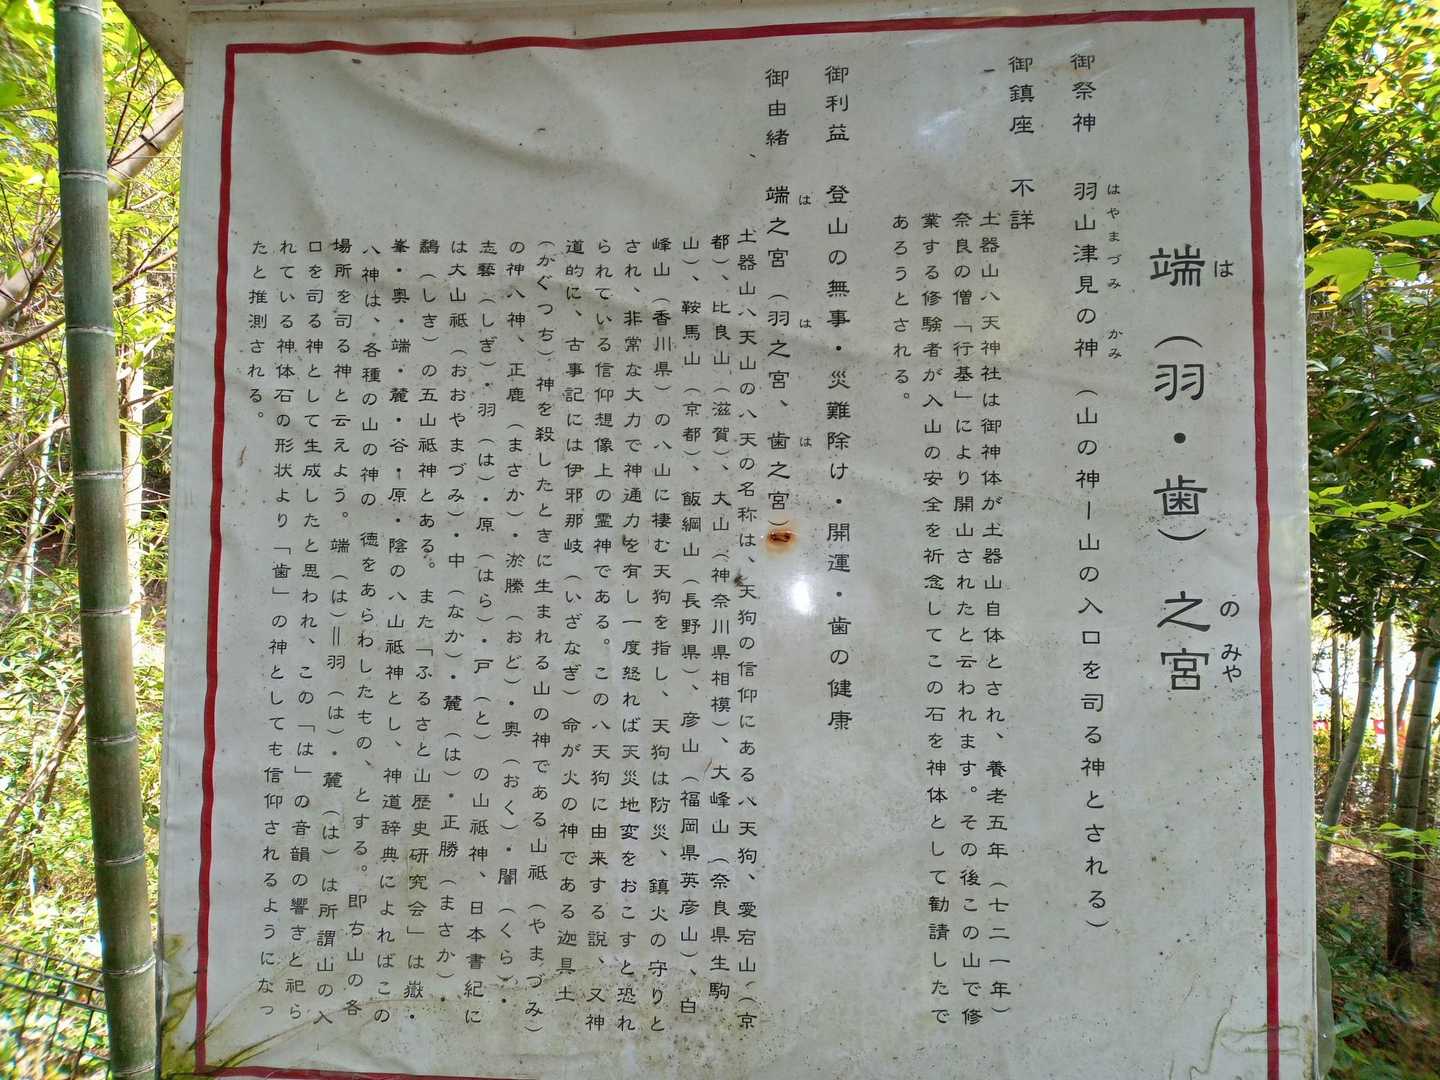 端（羽・歯）之宮
は
のみや
御祭神　羽山津見の神　（山の神ー山の入口を司る神とされる）
はやまづみ　かみ
御鎮座　不詳
土器山八天神社は御神体が土器山自体とされ、養老五年（七二一年）
奈良の僧「行基」により開山されたと云われます。その後この山で修
業する修験者が入山の安全を祈念してこの石を神体として勧請したで
あろうとされる。
御利益　登山の無事・災難除け・開運・歯の健康
御由緒　端之宮　（羽之宮、歯之宮）
は　は　は
土器山八天山の八天の名称は、天狗の信仰にある八天狗、愛宕山（京
都）、比良山（滋賀）、大山（神奈川県相模）、大峰山（奈良県生駒
山）、鞍馬山（京都）、飯綱山（長野県）、彦山（福岡県英彦山）、白
峰山（香川県）の八山に棲む天狗を指し、天狗は防災、鎮火の守りと
され、非常な大力で神通力を有し一度怒れば天災地変をおこすと恐れ
られている信仰想像上の霊神である。この八天狗に由来する説、又神
道的に、古事記には伊邪那岐（いざなぎ）命が火の神である迦具土
（かぐつち）神を殺したときに生まれる山の神である山祇（やまづみ）
の神八神、正鹿（まさか）・淤縢（おど）・奥（おく）・闇（くら）・
志藝（しぎ）・羽（は）・原（はら）・戸（と）の山祇神、日本書紀に
は大山祇（おおやまづみ）・中（なか）・麓（は）・正勝（まさか）・
䨄（しき）の五山祇神とある。また「ふるさと山歴史研究会」は嶽・
峯・奥・端・麓・谷・原・陰の八山祇神とし、神道辞典によればこの
八神は、各種の山の神の　徳をあらわしたもの、とする。即ち山の各
場所を司る神と云えよう。端（は）＝羽（は）・麓（は）は所謂山の入
口を司る神として生成したと思われ、この「は」の音韻の響きと祀ら
れている神体石の形状より「歯」の神としても信仰されるようになっ
たと推測される。